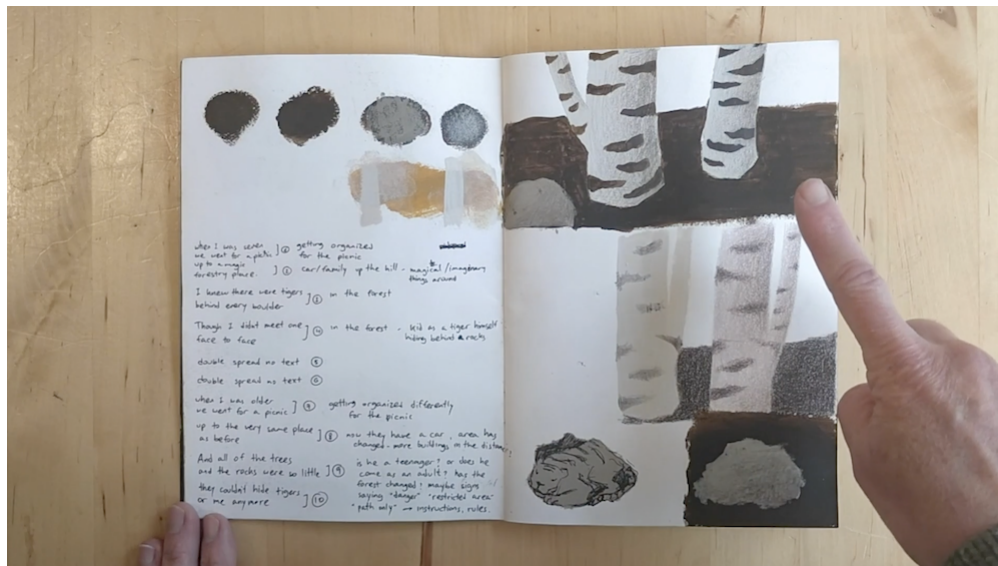 when I was seven ] ② getting organized
we went for a picnic for the picnic
up to a magic
forestry place. ] ② car/family up the hill - magical/imaginary
things around
I knew there were tigers
behind every boulder ] ③ in the forest
Though I didnt meet one
face to face ] ④ in the forest - kid as a tiger himself
hiding behind rocks
double spread no text ⑤
double spread no text ⑥
when I was older
we went for a picnic ] ⑦ getting organized differently
for the picnic
up to the very same place
as before ] ⑧ now they have a car, area has
changed - more buildings in the distance?
And all of the trees
and the rocks were so little ] ⑨ is he a teenager? or does he
come as an adult? has the
forest changed? maybe signs
they couldn't hide tigers
or me anymore ] ⑩ saying "danger" "restricted area"
"path only" → instructions, rules.